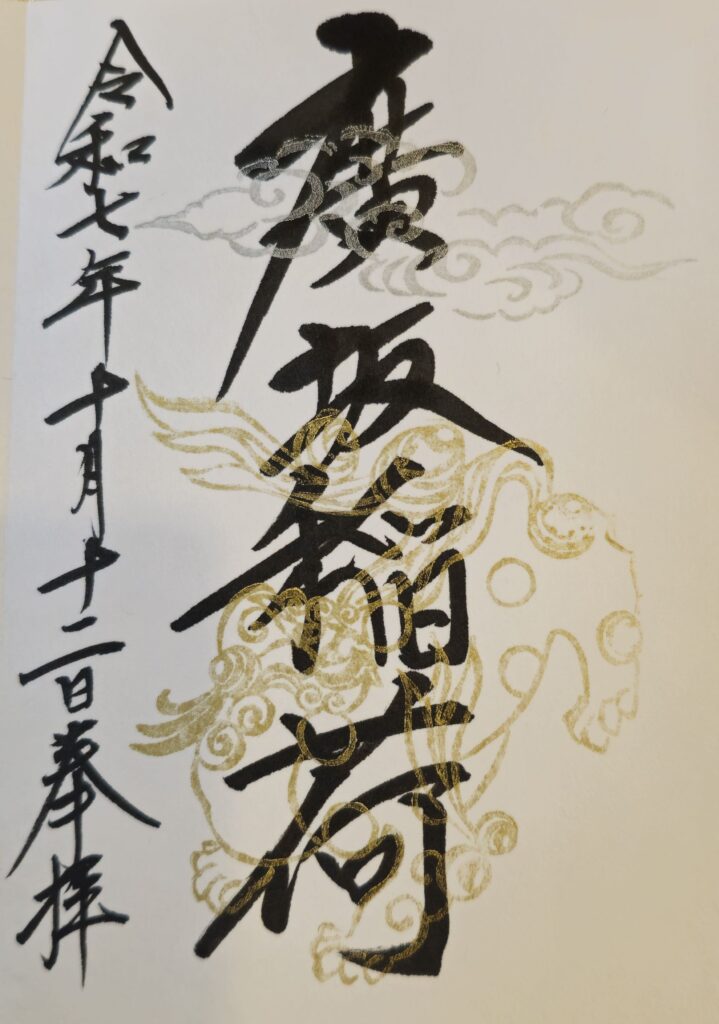 廣坂稲荷
令和七年十月十二日奉拝